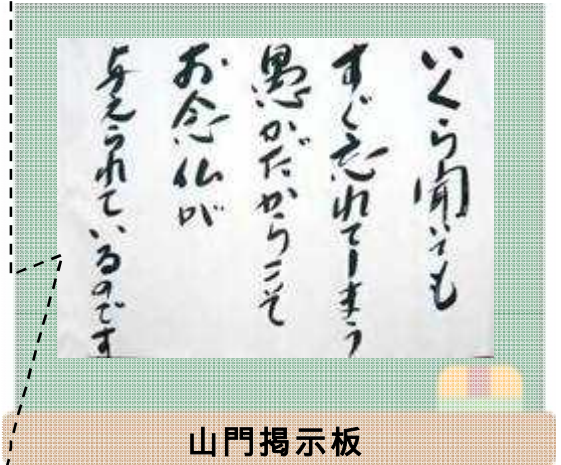 いくら聞いても
すぐ忘れてしまう
愚かだからこそ
お念仏が
与えられているのです
山門掲示板